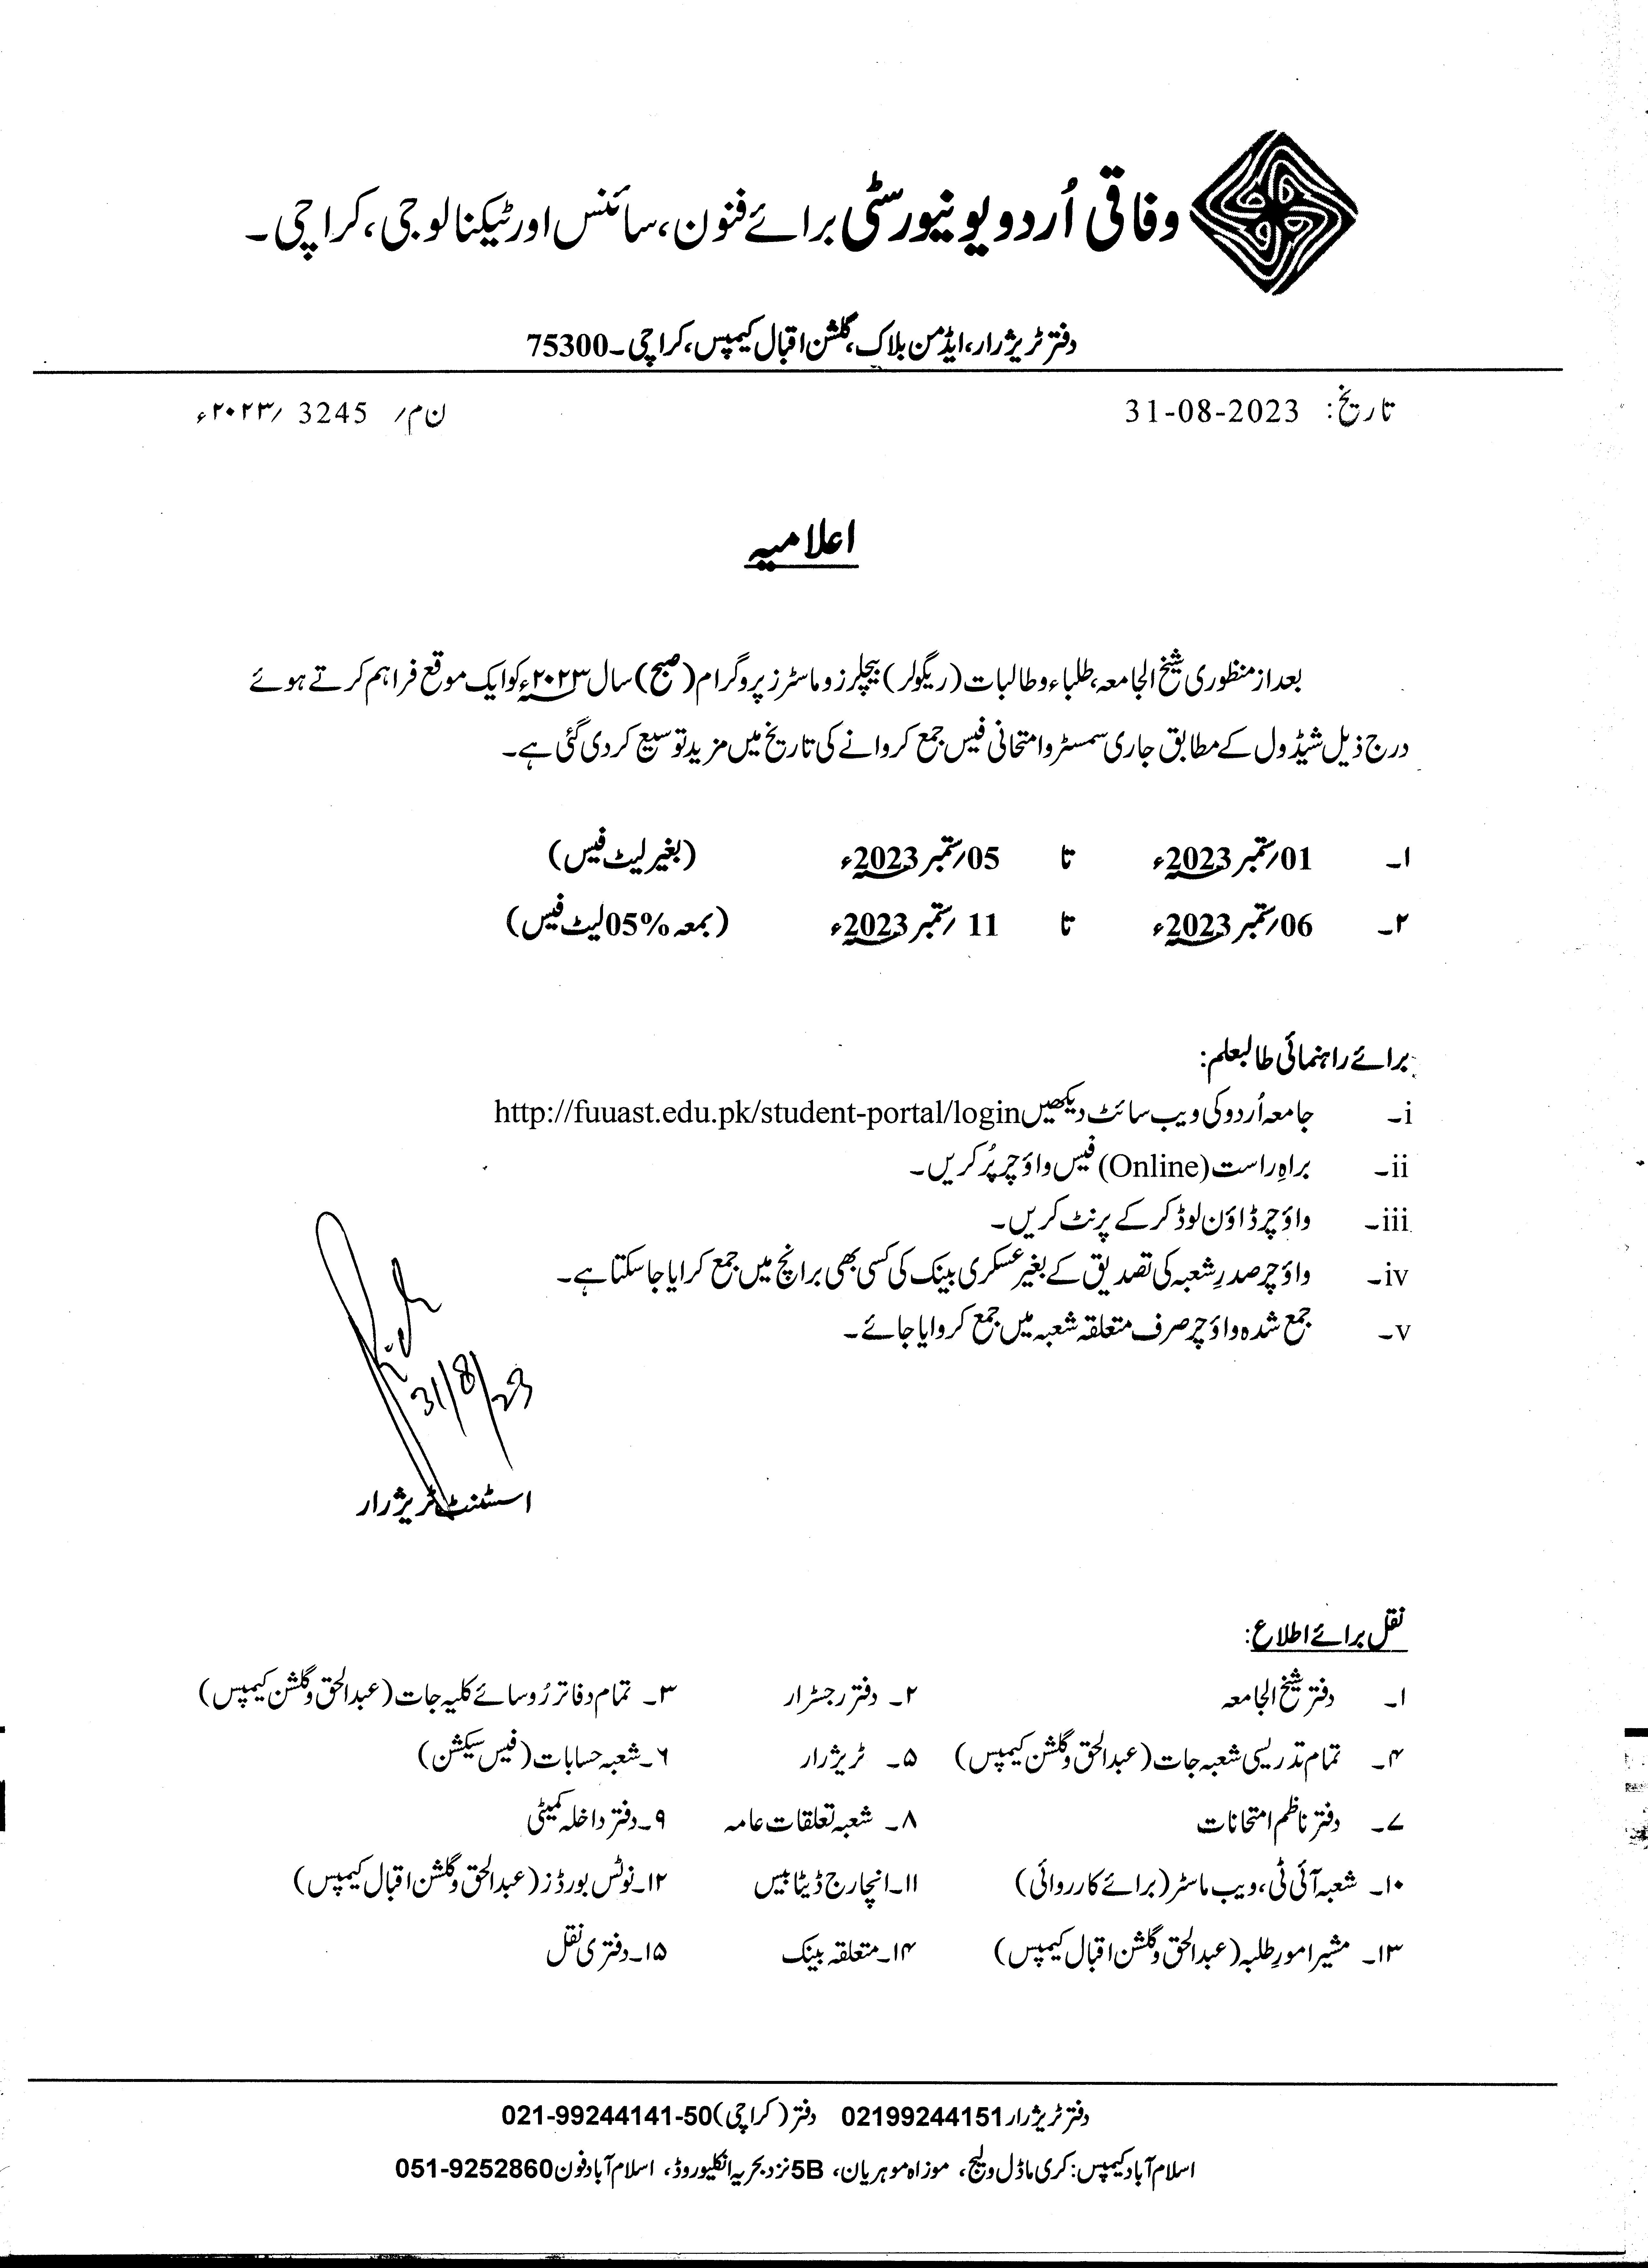 وفاقی اُردو یونیورسٹی برائے فنون، سائنس اور ٹیکنالوجی، کراچی۔
دفتر ٹریژرار، ایڈمن بلاک، گلشن اقبال کیمپس، کراچی۔75300
تاریخ: 31-08-2023 ن م/ 3245 /۲۰۲۳ء
اعلامیہ
بعد از منظوری شیخ الجامعہ، طلباء و طالبات (ریگولر) بیچلرز و ماسٹرز پروگرام (صبح) سال ۲۰۲۳ء کو ایک موقع فراہم کرتے ہوئے
درج ذیل شیڈول کے مطابق جاری سمسٹر و امتحانی فیس جمع کروانے کی تاریخ میں مزید توسیع کر دی گئی ہے۔
۱۔ 01/ستمبر 2023ء تا 05/ستمبر 2023ء (بغیر لیٹ فیس)
۲۔ 06/ستمبر 2023ء تا 11 /ستمبر 2023ء (بمعہ %05 لیٹ فیس)
برائے راہنمائی طالبعلم:
i۔ جامعہ اُردو کی ویب سائٹ دیکھیں http://fuuast.edu.pk/student-portal/login
ii۔ براہِ راست (Online) فیس واؤچر پُر کریں۔
iii۔ واؤچر ڈاؤن لوڈ کر کے پرنٹ کریں۔
iv۔ واؤچر صدرِ شعبہ کی تصدیق کے بغیر عسکری بینک کی کسی بھی برانچ میں جمع کرایا جا سکتا ہے۔
v۔ جمع شدہ واؤچر صرف متعلقہ شعبہ میں جمع کروایا جائے۔
31/8/23
اسٹنٹ ٹریژرار
نقل برائے اطلاع:
۱۔ دفتر شیخ الجامعہ ۲۔ دفتر رجسٹرار ۳۔ تمام دفاتر رُوسائے کلیہ جات (عبدالحق و گلشن کیمپس)
۴۔ تمام تدریسی شعبہ جات (عبدالحق و گلشن کیمپس) ۵۔ ٹریژرار ۶۔ شعبہ حسابات (فیس سیکشن)
۷۔ دفتر ناظم امتحانات ۸۔ شعبہ تعلقات عامہ ۹۔ دفتر داخلہ کمیٹی
۱۰۔ شعبہ آئی ٹی، ویب ماسٹر (برائے کارروائی) ۱۱۔ انچارج ڈیٹا بیس ۱۲۔ نوٹس بورڈز (عبدالحق و گلشن اقبال کیمپس)
۱۳۔ مشیر امورِ طلبہ (عبدالحق و گلشن اقبال کیمپس) ۱۴۔ متعلقہ بینک ۱۵۔ دفتری نقل
دفتر ٹریژرار 02199244151 دفتر (کراچی) 021-99244141-50
اسلام آباد کیمپس: کری ماڈل ولیج، موزاہ موہریان، 5B نزد بحریہ انکلیو روڈ، اسلام آباد فون 051-9252860